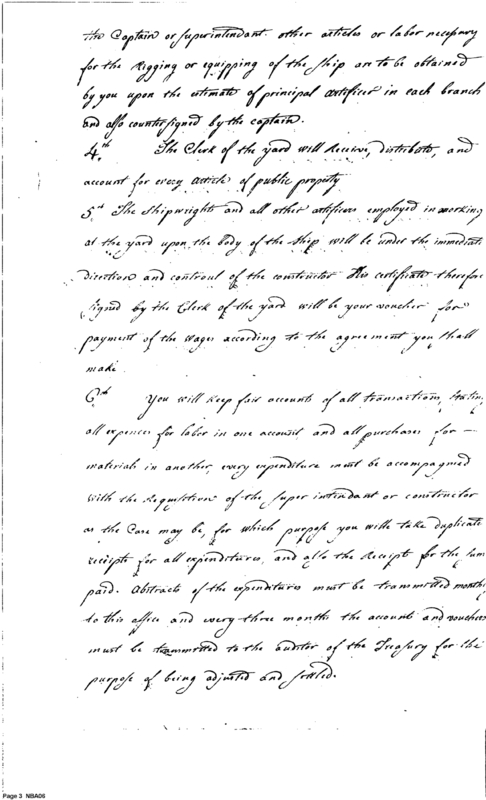 the Captain or superintendant. other articles or labor necessary
for the rigging or equipping of the ship are to be obtained
by you upon the estimate of principal artificer in each branch
and also countersigned by the captain.
4th The Clerk of the yard will Receive, distribute, and
account for every article of public property
5th The Shipwrights and all other artificers employed in working
at the yard upon the body of the ship will be under the immediate
direction and controul of the constructor His certificate therefore
signed by the Clerk of the yard will be your voucher for
payment of the wages according to the agreement you shall
make.
6th You will keep fair accounts of all transactions, stating
all expences for labor in one account, and all purchases for —
materials in another, every expenditure must be accompagnied
with the Requisition of the super intendant or constructor
as the Case may be, for which purpose you will take duplicate
receipts for all expenditures, and also the Receipts for the sum
paid. Abstracts of the expenditures must be transmitted monthly
to this office and every three months the accounts and vouchers
must be transmitted to the auditor of the Treasury for the
purpose of being adjusted and settled.
Page 3 NBA06